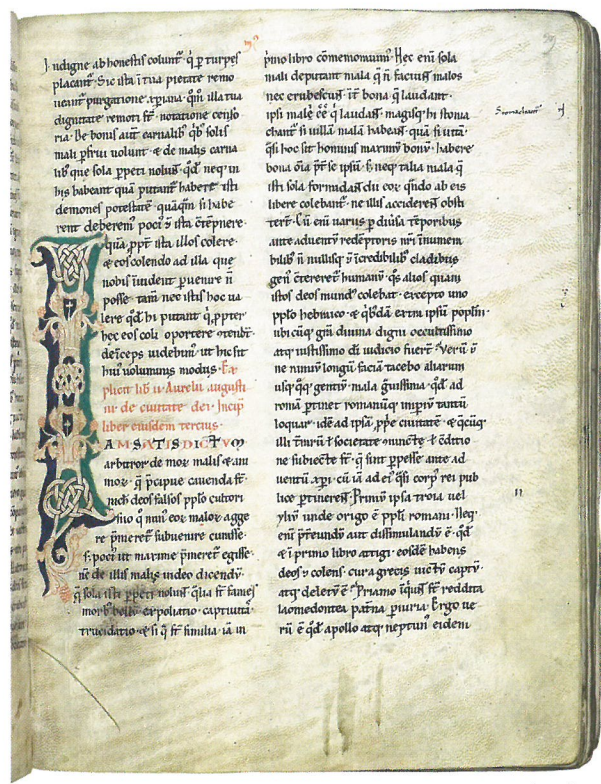 Indigne ab honestis coluntʳ q̇ ꝑ turpes
placantʳ. Sic ista ī tua pietate remo
ueantʳ purgatione xp̄iana. qm̄ illa tua
dignitate remoti st̄ notatione censo
ria. De bonis aut̄ carnalib; qb; solis
mali ꝑfrui uolunt. & de malis carna
lib; que sola ꝑpeti nolunt. qd̄ neq; in
his habeant quā putantʳ habere isti
demones potestatē. quāqm̄ si habe
rent. deberem᷒ poti᷒ & ista ctēpnere.
quā ꝓpt̄ ista illos colere.
& eos colendo ad illa que
nobis īuident ꝑuenire n̄
posse. tam̄ nec istis hoc ua
lere qd̄ hi putant q̇ ꝓpter
hec eos coli oportere
deīceps uidebim᷒. ut hic sit
hui᷒ uoluminis modus. Ex
plicit lib̄ ii. Aurelii augusti
ni de ciuitate dei. Incip̄
liber eiusdem tercius.
IAM SATIS DICTVM
arbitror de mor̄ malis & ani
mor̄. q̄ p̄cipue cauenda st̄.
nich deos falsos pplo cultori
suo q̄ min᷒ eor̄ malor̄ agge
re p̄meretʳ subuenire curasse.
s; poci᷒ ut maxime p̄meretʳ egisse.
nc̄ de illis malis uideo dicendū.
q̄ sola isti ꝑpeti nolunt. qlia st̄ fames
morb᷒ bellū. expoliatio. captiuitas
trucidatio. & si q̄ st̄ similia. iā in
pimo libro cōmemorauim᷒. Hec eni sola
mali deputant mala q̄ n̄ faciunt malos
nec erubescunt īt bona q̄ laudant.
ipsi male eē q̇ laudant. magisq; hi stoma
chantʳ si uillā malā habeant. quā si uitā.
qsi hoc sit hominis maximū bonū. habere
bona oīa pt̄ se ipsū. S; neq; talia mala q̄
isti sola formidant. dii eor̄ qn̄do ab eis
libere colebantʳ. ne illis accideret obsti
terūt. Cū eni uariis ꝑ diūsa tēporibus
ante aduentū redēptoris nr̄i innumera
bilib; n̄ nullisq; & īcredibilib; cladibus
gen᷒ ctereretʳ humanū. qs alios quam
istos deos mund᷒ colebat. excepto uno
pplo hebraico. & qb;dā extra ipsū popl̄m
ubicūq; grā diuina digni occultissimo
atq; iustissimo dī iudicio fuert̄. Verū n̄
ne nimiū longū faciā tacebo aliarum
usq;q̄q; gentiū mala g̃uissima. qd̄ ad
romā ptinet romanūq; impiū tantū
loquar. id ē ad ipsā ꝓpe ciuitatē. & q̄cūq;
illi tr̄rarū ł societate iuncte. ł cditio
ne subiecte st̄. q̄ sint ꝑpesse ante ad
uentū xp̄i. cū iā ad ei᷒ qsi corp᷒ rei pub
lice ꝑtinerent. Primū ipsa troia uel
yliū unde origo ē ppli romani. Neq;
eni p̄tereundū aut dissimulandū ē. qd̄
& ī primo libro attigi. eosdē habens
deos & colens. cur a grecis uictū captū.
atq; deletū ē. Priamo īquiūt st̄ reddita
laomedontea paterna ꝑiuria. Ergo ue
rū ē qd̄ apollo atq; neptun᷒ eidem
Stomachantʳ